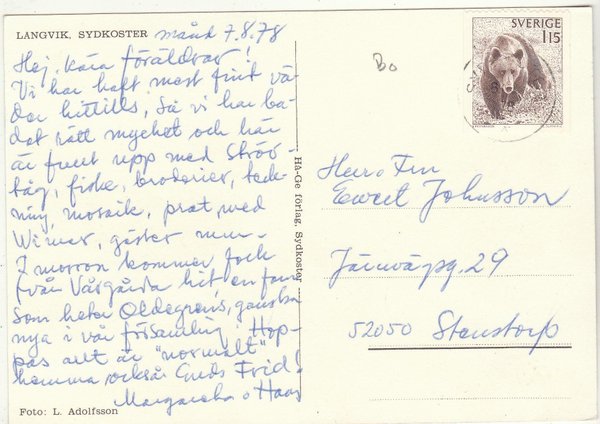 LANGVIK, SYDKOSTER månd 7.8.78
Hej, kära föräldrar!
Vi har haft mest fint vä-
der hittills, så vi har ba-
dat rätt mycket och här
är fullt upp med ströv-
tåg, fiske, broderier, teck-
ning, mosaik, prat med
Wimer, gäster m m -
I morron kommer folk
från Vårgårda hit, en familj
som heter Oldegrens, ganska
nya i vår församling. Hop-
pas allt är "normalt"
hemma också. Guds Frid!
Margaretha o Hans
Foto: L. Adolfsson
Hå-Ge förlag, Sydkoster
Bo
SVERIGE
115
Herr o Fru
Ewert Johnsson
Järnvägsg. 29
52050 Stenstorp